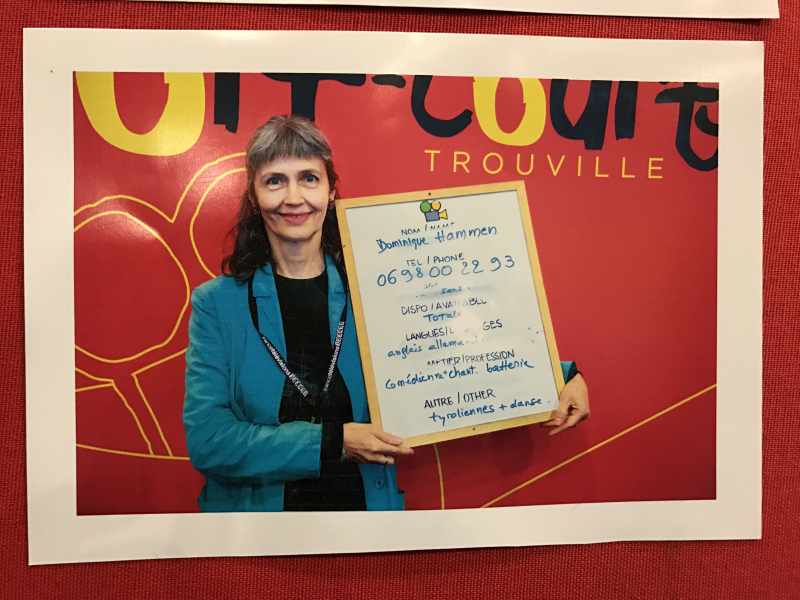 Off-Court
TROUVILLE
NOM / NAME
Dominique Hammen
TEL / PHONE
06 98 00 22 93
sans
DISPO / AVAILABLE
Totale
LANGUES/L GES
anglais allemand
METIER/PROFESSION
Comédienne+chant. batterie
AUTRE / OTHER
tyroliennes + danse.